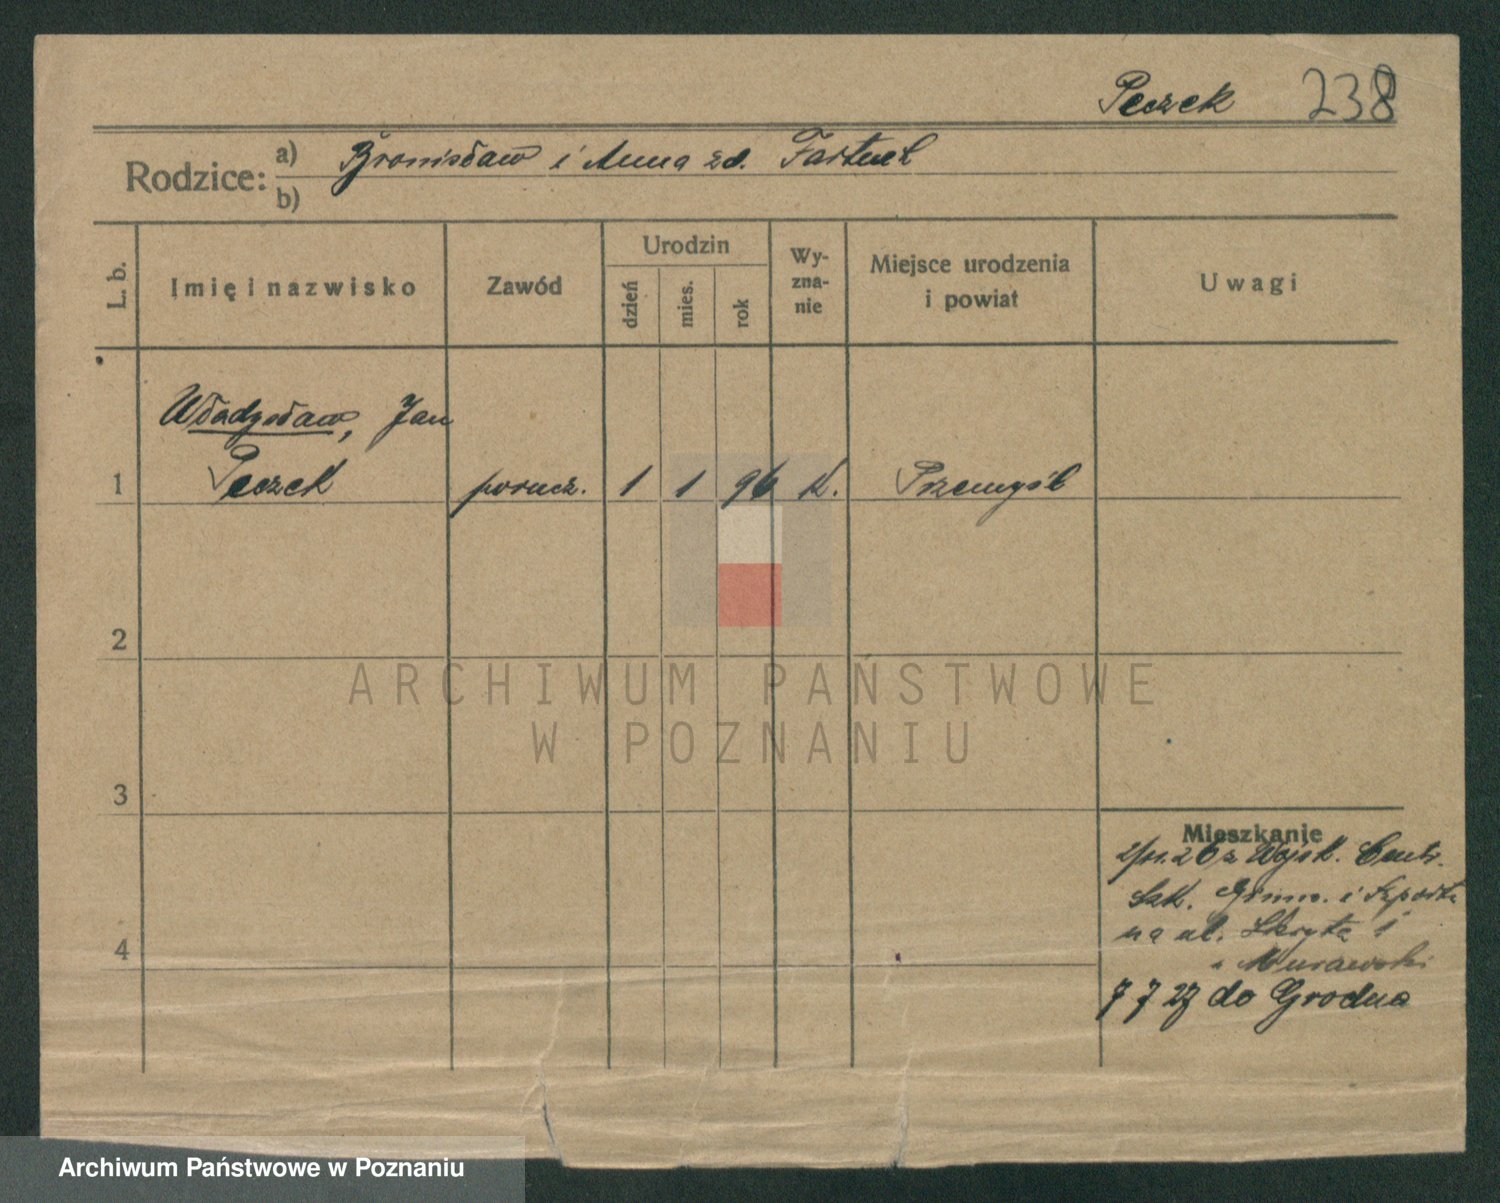 Peczek 238
Rodzice: a) Bronisław i Anna zd. Fartuch
b)
L. b. Imię i nazwisko Zawód Urodzin dzień mies. rok Wy-zna-nie Miejsce urodzenia i powiat Uwagi
Władysław, Jan
1 Peczek porucz. 1 1 96 K. Przemyśl
2
ARCHIWUM PAŃSTWOWE
W POZNANIU
3
Mieszkanie
2/11.26 z Wojsk. Centr.
Szk. Gimn. i Sportu
na ul. Skryta 1
Murawski
4
7 7 27 do Grodna
Archiwum Państwowe w Poznaniu